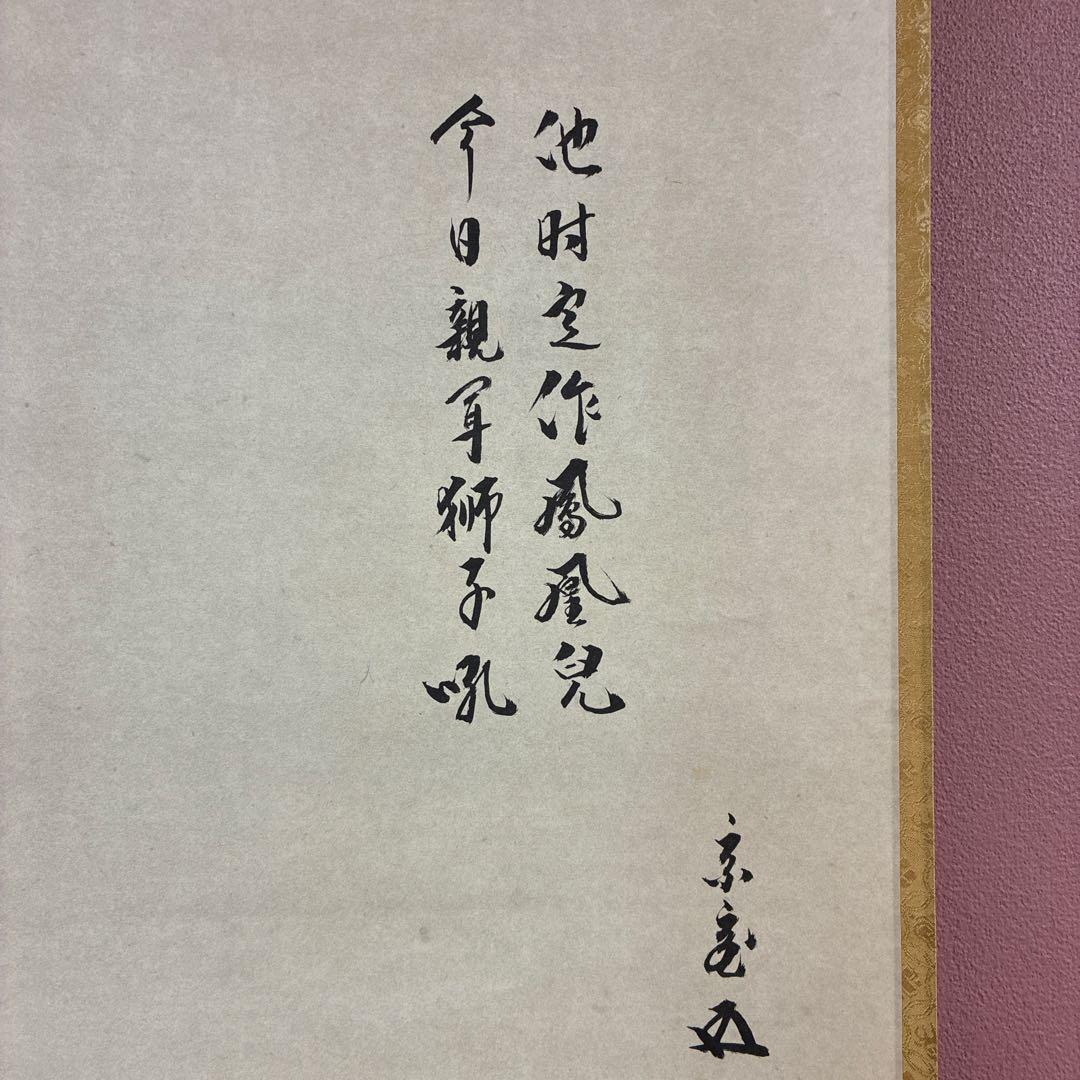 今日親聞獅子吼
他时定作鳳凰兒